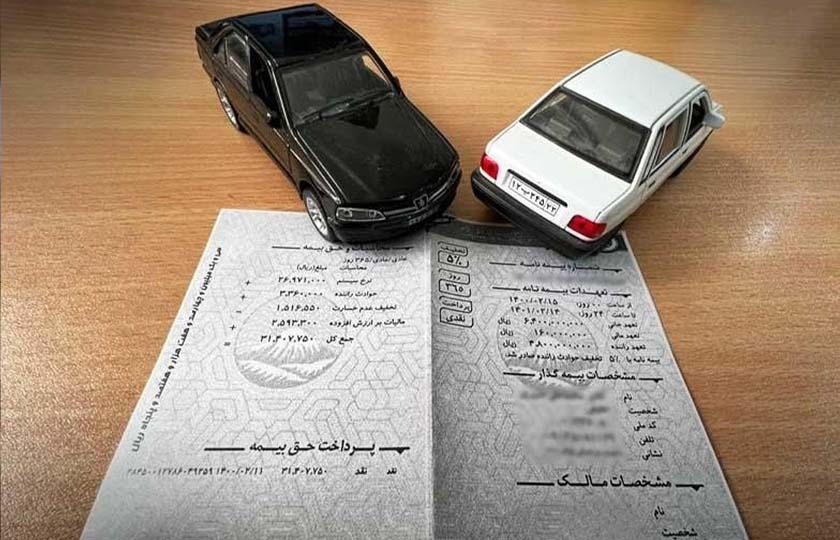 ۱۲ب۳۴۵ ۲۲
تخفیف
۵%
روز
۳۶۵
پرداخت
نقدی
شماره بیمه نامه
تعهدات بیمه نامه
از ساعت ۰۰ روز: ۱۴۰۰/۰۲/۱۵
تا ساعت ۲۴ روز: ۱۴۰۱/۰۲/۱۴
تعهد جانی ۶,۴۰۰,۰۰۰,۰۰۰ ریال
تعهد مالی ۱۶۰,۰۰۰,۰۰۰
تعهد راننده ۴,۸۰۰,۰۰۰,۰۰۰ ریال
بیمه نامه با ۵% تخفیف حوادث راننده صادر شد.
مشخصات بیمه گذار
نام
شخصیت
کد ملی
تلفن
نشانی
مشخصات مالک
نام
شخصیت
محاسبات و حق بیمه
عادی/عادی/۳۶۵ روز
محاسبات مبلغ(ریال)
نرخ سیستم ۲۶,۹۷۱,۰۰۰ +
حوادث راننده ۳,۳۶۰,۰۰۰ +
تخفیف عدم خسارت ۱,۵۱۶,۵۵۰ -
مالیات بر ارزش افزوده ۲,۵۹۳,۳۰۰ +
جمع کل ۳۱,۴۰۷,۷۵۰ =
سی و یک میلیون و چهارصد و هفت هزار و هفتصد و پنجاه ریال
پرداخت حق بیمه
نقد نقد ۳۱,۴۰۷,۷۵۰ ۱۴۰۰/۰۲/۱۱